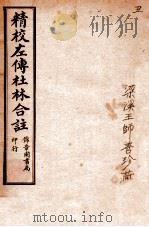 丑
精校左傳杜林合註
錦章圖書局
印行
梁溪王師晉珍藏